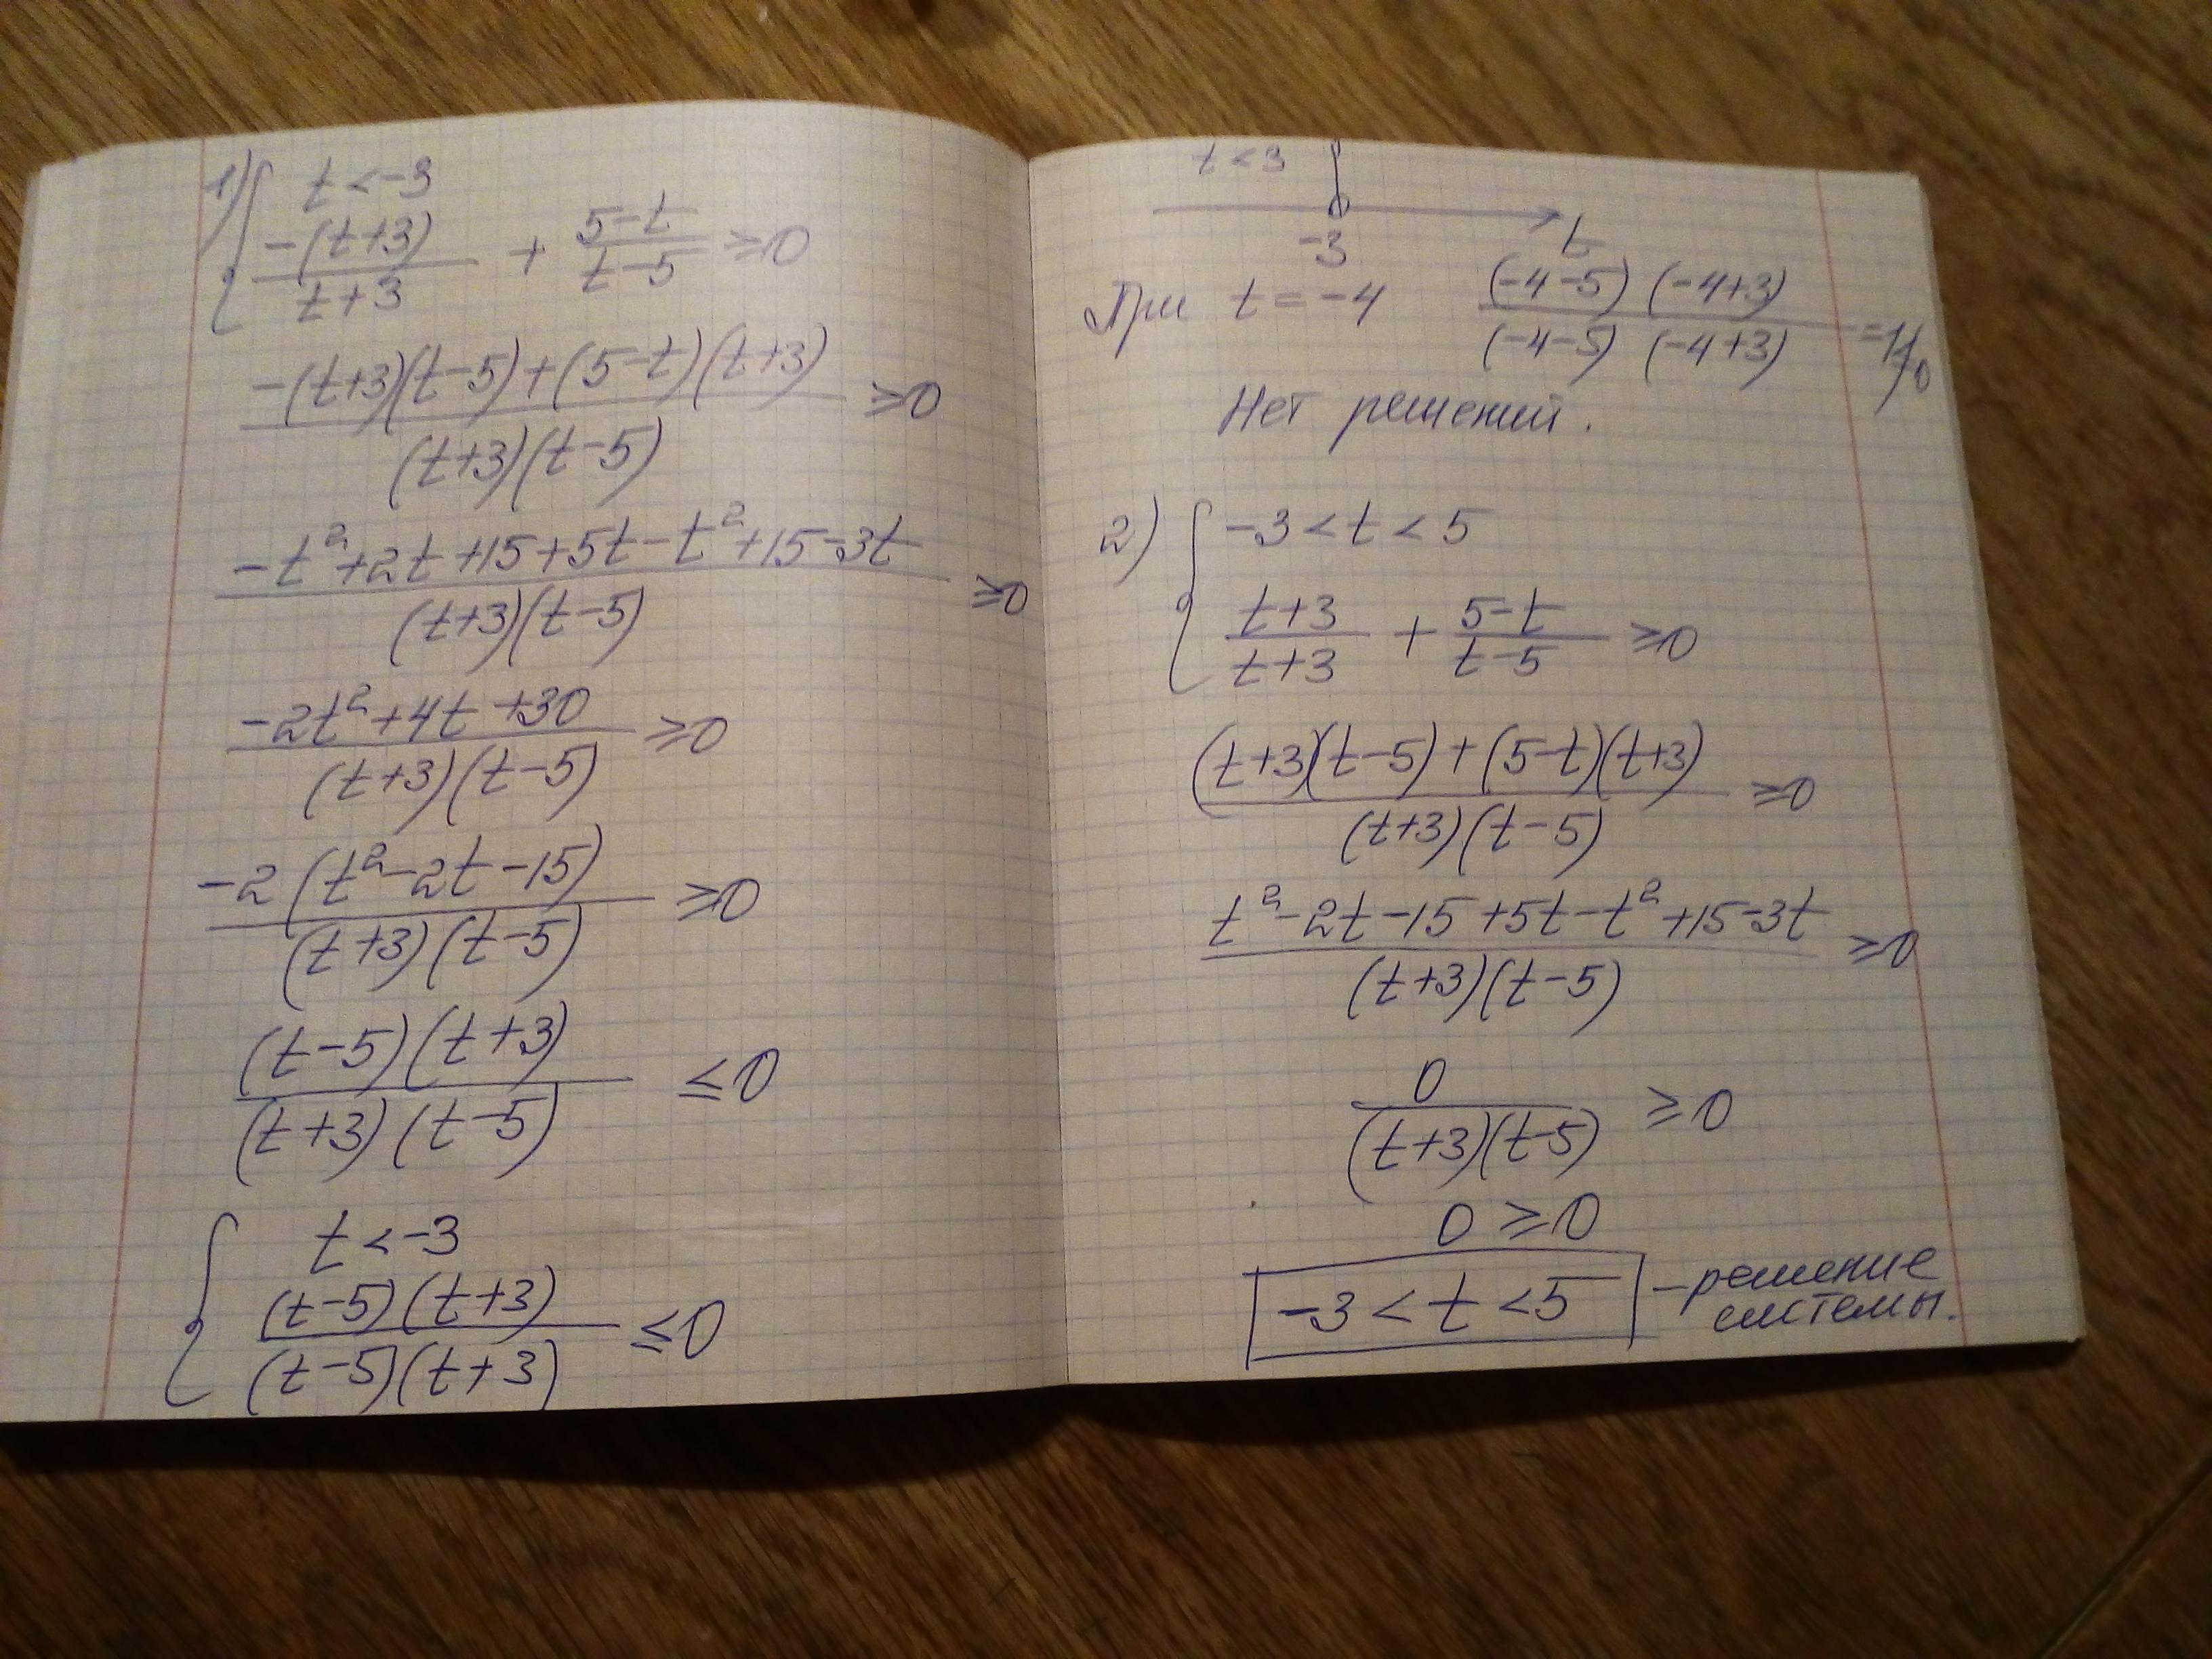 1) { t < -3
-(t+3)/(t+3) + (5-t)/(t-5) ≥ 0
(-(t+3)(t-5)+(5-t)(t+3))/((t+3)(t-5)) ≥ 0
(-t²+2t+15+5t-t²+15-3t)/((t+3)(t-5)) ≥ 0
(-2t²+4t+30)/((t+3)(t-5)) ≥ 0
-2(t²-2t-15)/((t+3)(t-5)) ≥ 0
((t-5)(t+3))/((t+3)(t-5)) ≤ 0
{ t < -3
((t-5)(t+3))/((t-5)(t+3)) ≤ 0
t < 3
-3 t
При t = -4 ((-4-5)(-4+3))/((-4-5)(-4+3)) =
Нет решений.
2) { -3 < t < 5
(t+3)/(t+3) + (5-t)/(t-5) ≥ 0
((t+3)(t-5)+(5-t)(t+3))/((t+3)(t-5)) ≥ 0
(t²-2t-15+5t-t²+15-3t)/((t+3)(t-5)) ≥ 0
0/((t+3)(t-5)) ≥ 0
0 ≥ 0
-3 < t < 5 - решение
системы.